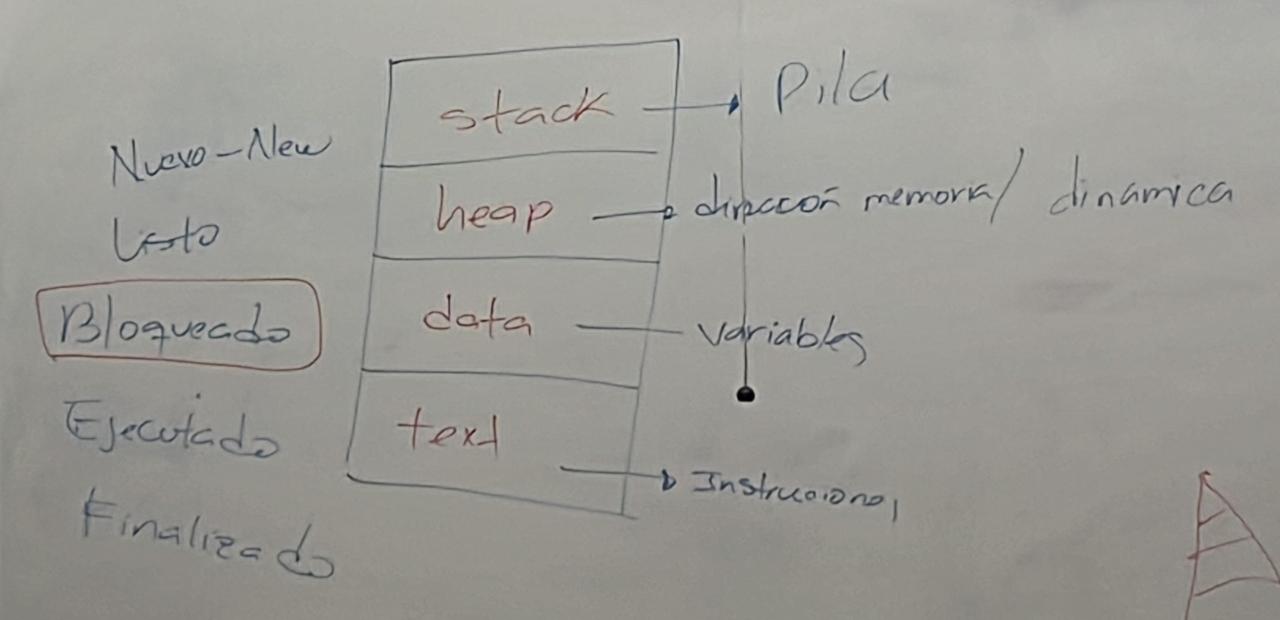 Nuevo-New
Listo
Bloqueado
Ejecutado
Finalizado
stack
Pila
heap
dirección memoria/ dinamica
data
variables
text
Instruciones